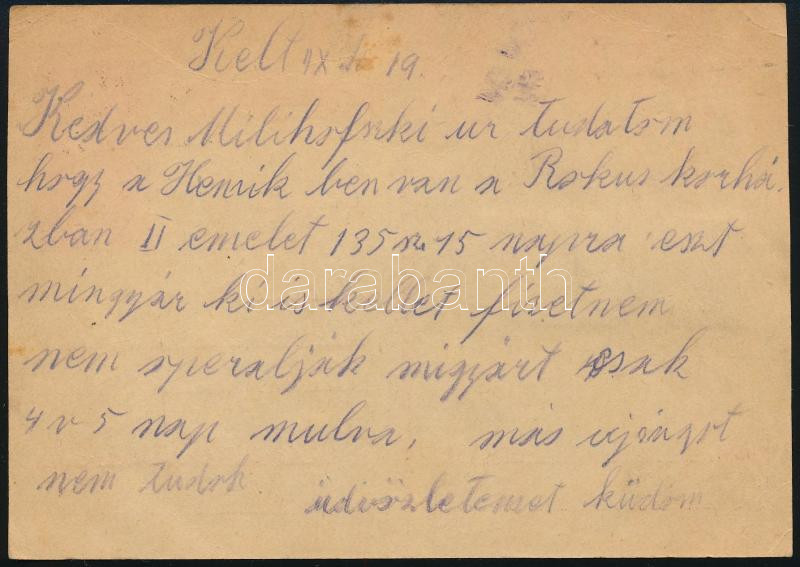 Kelt IX 19.
Kedves Milihofszki ur tudatom
hogy a Henrik ben van a Rokus korhá
zban II emelet 135 sz 15 napra eszt
mingyár ki is kellet fizetnem
nem operalják migyárt csak
4 v 5 nap mulva, más ujságot
nem tudok üdvözletemet küdöm
darabanth